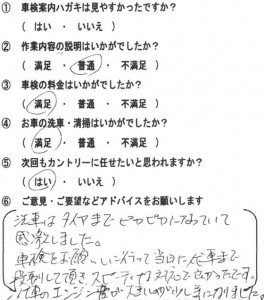 ① 車検案内ハガキは見やすかったですか?
( はい ・ いいえ )
② 作業内容の説明はいかがでしたか?
( 満足 ・ 普通 ・ 不満足 )
③ 車検の料金はいかがでしたか?
( 満足 ・ 普通 ・ 不満足 )
④ お車の洗車・清掃はいかがでしたか?
( 満足 ・ 普通 ・ 不満足 )
⑤ 次回もカントリーに任せたいと思われますか?
( はい ・ いいえ )
⑥ ご意見・ご要望などアドバイスをお願いします
洗車はタイヤまでピカピカになっていて
感激しました。
車検をお願いに行って当日に代車まで
して頂きスピーディな対応で良かったです。
車のエンジン音が大きいのが少し気になりました。